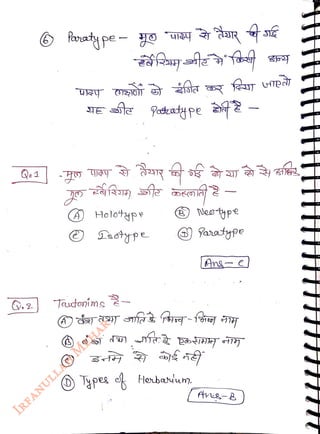 ⑥ Paratype – मूल पादप से तैयार की गई
हर्बेरियम शीट में किसी अन्य
पादप को इंगित कर दिया जाए तो
यह शीट Paratype होती है –
Q.1 - मूल पादप से तैयार की गई दो या दो से अधिक
मूल हर्बेरियम शीट कहलाती है –
Ⓐ Holotype Ⓑ Neotype
Ⓒ Isotype Ⓓ Paratype
Ans – C
Q.2 Tautonims है –
Ⓐ वंश तथा जाति के भिन्न - भिन्न नाम
Ⓑ वंश तथा जाति के एक समान नाम
Ⓒ इनमें से कोई नहीं
Ⓓ Types of Herbarium.
Ans – B
IRFANULLAH